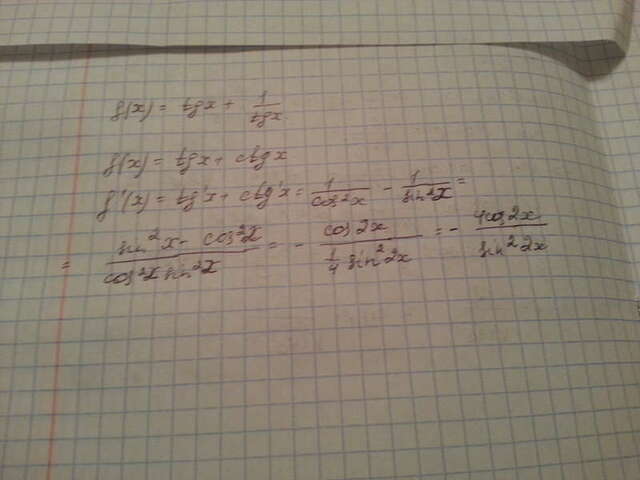 f(x) = tgx + 1/tgx
f(x) = tgx + ctgx
f'(x) = tg'x + ctg'x = 1/cos²x - 1/sin²x =
= sin²x - cos²x/cos²x sin²x = - cos2x/¼ sin²2x = - 4cos2x/sin²2x